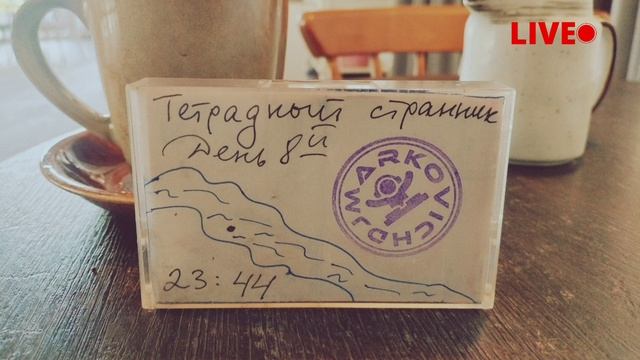 LIVE
Тетрадный странник
День 8й
MARKOVICHDJ
23:44